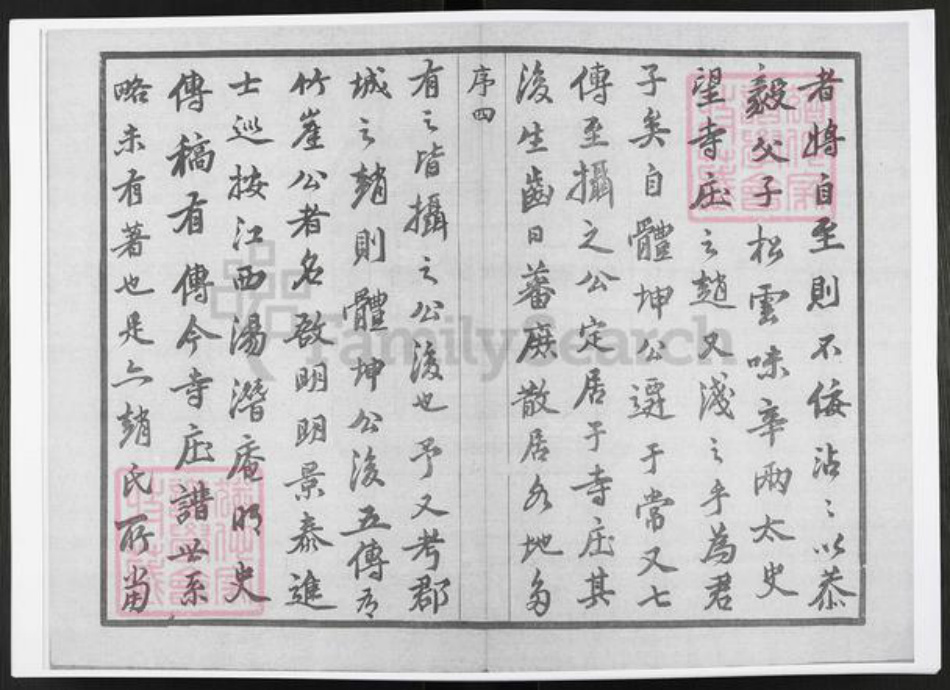 者將自至則不佞沾沾以恭
毅父子松雲味辛兩太史
望寺庄之趙又淺之乎為君
子矣自體坤公遷于常又七
傳至攝之公定居于寺庄其
後生齒日蕃庶散居各地多
序四
有之皆攝之公後也予又考郡
城之趙則體坤公後五傳有
竹崖公者名敔明明景泰進
士巡按江西湯潛庵明史
傳稿有傳今寺庄譜世系
略未有著也是亦趙氏所當
FamilySearch